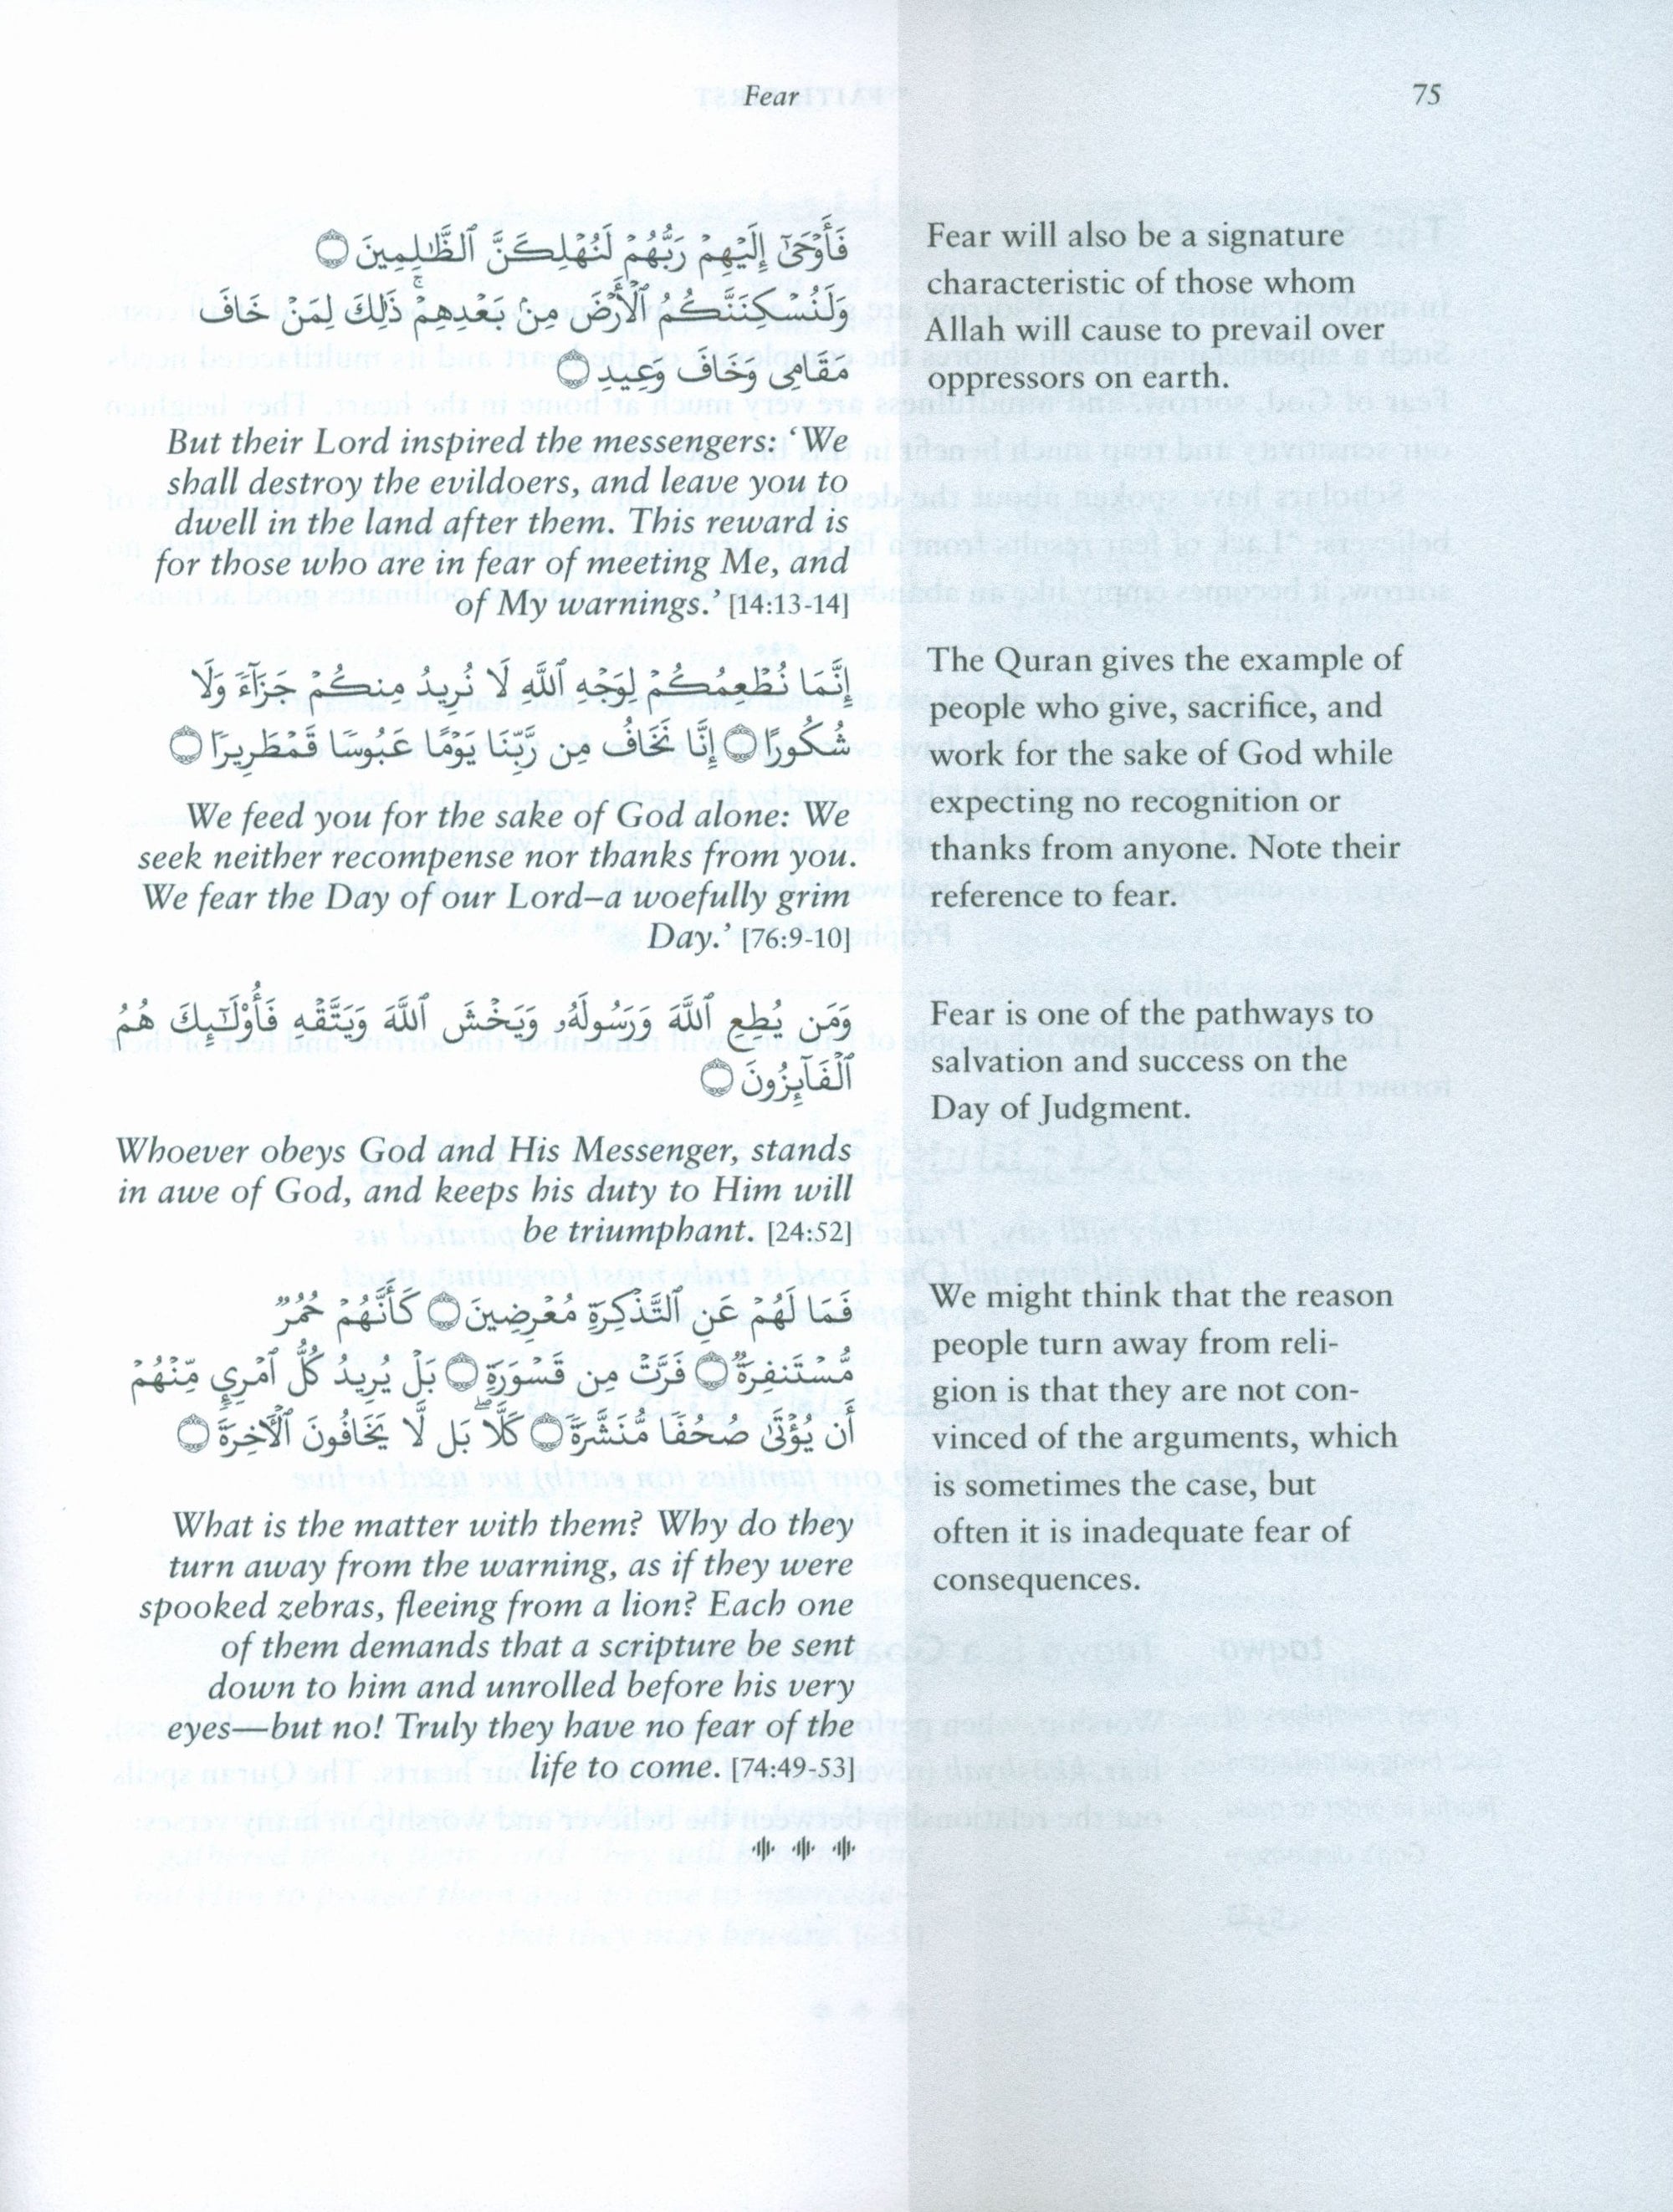 Fear
75
فَأَوْحَىٰٓ إِلَيْهِمْ رَبُّهُمْ لَنُهْلِكَنَّ ٱلظَّٰلِمِينَ ۝
وَلَنُسْكِنَنَّكُمُ ٱلْأَرْضَ مِنۢ بَعْدِهِمْ ۚ ذَٰلِكَ لِمَنْ خَافَ
مَقَامِى وَخَافَ وَعِيدِ ۝
But their Lord inspired the messengers: ‘We
shall destroy the evildoers, and leave you to
dwell in the land after them. This reward is
for those who are in fear of meeting Me, and
of My warnings.’ [14:13-14]
Fear will also be a signature
characteristic of those whom
Allah will cause to prevail over
oppressors on earth.
إِنَّمَا نُطْعِمُكُمْ لِوَجْهِ ٱللَّهِ لَا نُرِيدُ مِنكُمْ جَزَآءً وَلَا
شُكُورًا ۝ إِنَّا نَخَافُ مِن رَّبِّنَا يَوْمًا عَبُوسًا قَمْطَرِيرًا ۝
We feed you for the sake of God alone: We
seek neither recompense nor thanks from you.
We fear the Day of our Lord–a woefully grim
Day.’ [76:9-10]
The Quran gives the example of
people who give, sacrifice, and
work for the sake of God while
expecting no recognition or
thanks from anyone. Note their
reference to fear.
وَمَن يُطِعِ ٱللَّهَ وَرَسُولَهُۥ وَيَخْشَ ٱللَّهَ وَيَتَّقْهِ فَأُو۟لَٰٓئِكَ هُمُ
ٱلْفَآئِزُونَ ۝
Whoever obeys God and His Messenger, stands
in awe of God, and keeps his duty to Him will
be triumphant. [24:52]
Fear is one of the pathways to
salvation and success on the
Day of Judgment.
فَمَا لَهُمْ عَنِ ٱلتَّذْكِرَةِ مُعْرِضِينَ ۝ كَأَنَّهُمْ حُمُرٌ
مُّسْتَنفِرَةٌ ۝ فَرَّتْ مِن قَسْوَرَةٍۭ ۝ بَلْ يُرِيدُ كُلُّ ٱمْرِئٍ مِّنْهُمْ
أَن يُؤْتَىٰ صُحُفًا مُّنَشَّرَةً ۝ كَلَّا ۖ بَل لَّا يَخَافُونَ ٱلْءَاخِرَةَ ۝
What is the matter with them? Why do they
turn away from the warning, as if they were
spooked zebras, fleeing from a lion? Each one
of them demands that a scripture be sent
down to him and unrolled before his very
eyes—but no! Truly they have no fear of the
life to come. [74:49-53]
We might think that the reason
people turn away from reli-
gion is that they are not con-
vinced of the arguments, which
is sometimes the case, but
often it is inadequate fear of
consequences.